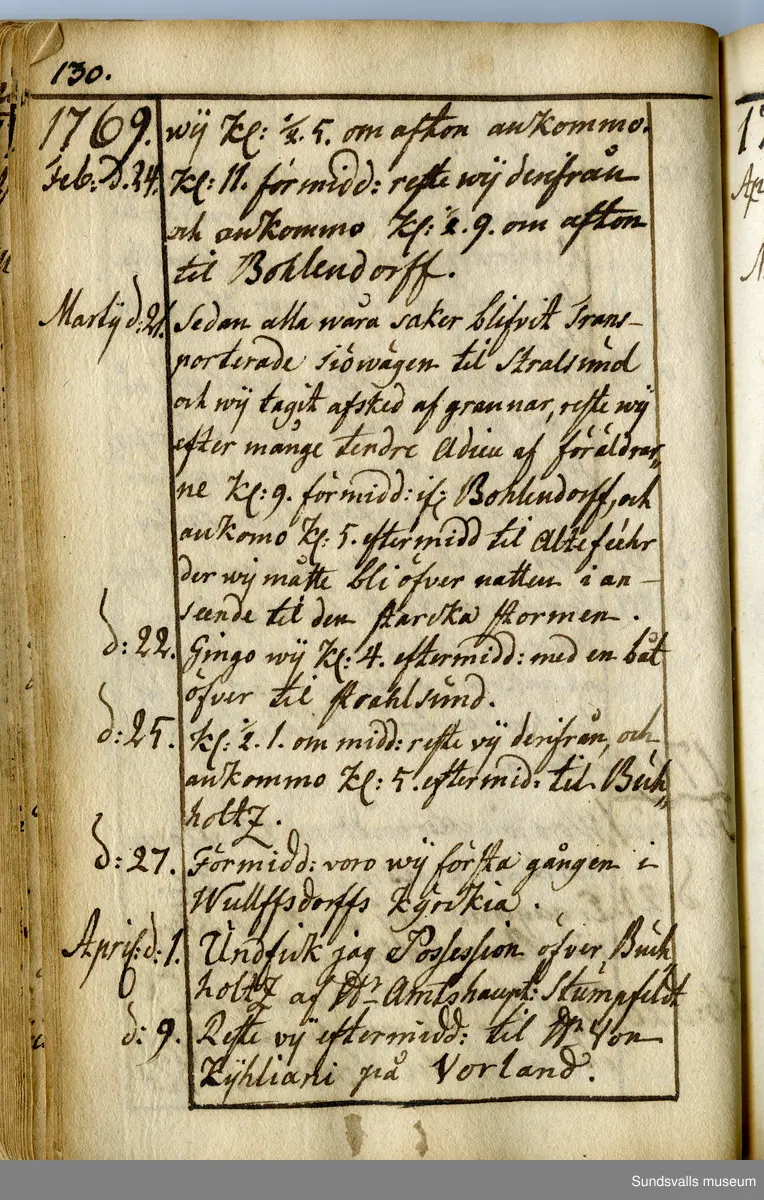 130.
1769. wÿ Kl: ½. 5. om afton ankommo.
Feb: d. 24. Kl: 11. förmidd: reste wÿ derifrån
och ankommo Kl: ½. 9. om afton
til Bohlendorff.
Martÿ d: 21. Sedan alla wåra saker blifvit Trans-
porterade siöwägen til Stralsund
och wÿ tagit afsked af grannar, reste wÿ
efter månge tendre Adieu af föräldrar„
ne Kl: 9. förmidd: if: Bohlendorff, och
ankomo Kl: 5. eftermidd til Altefeehr
der wÿ måtte bli öfver natten i an-
seende til den starcka stormen.
d: 22. Gingo wÿ Kl: 4. eftermidd: med en båt
öfver til strahlsund.
d: 25. Kl: ½. 1. om midd: reste vÿ derifrån, och
ankommo Kl: 5. eftermid: til Buch„
holtz.
d: 27. Förmidd: voro wÿ första gången i
Wullffsdorffs Kÿrckia.
April: d: 1. Undfick jag Possession öfver Buch„
holtz af Hr Amtshaupt: Stumpfeldt
d: 9. Reste vÿ eftermidd: til Hr Von
Kÿhliani på Vorland.
Sundsvalls museum